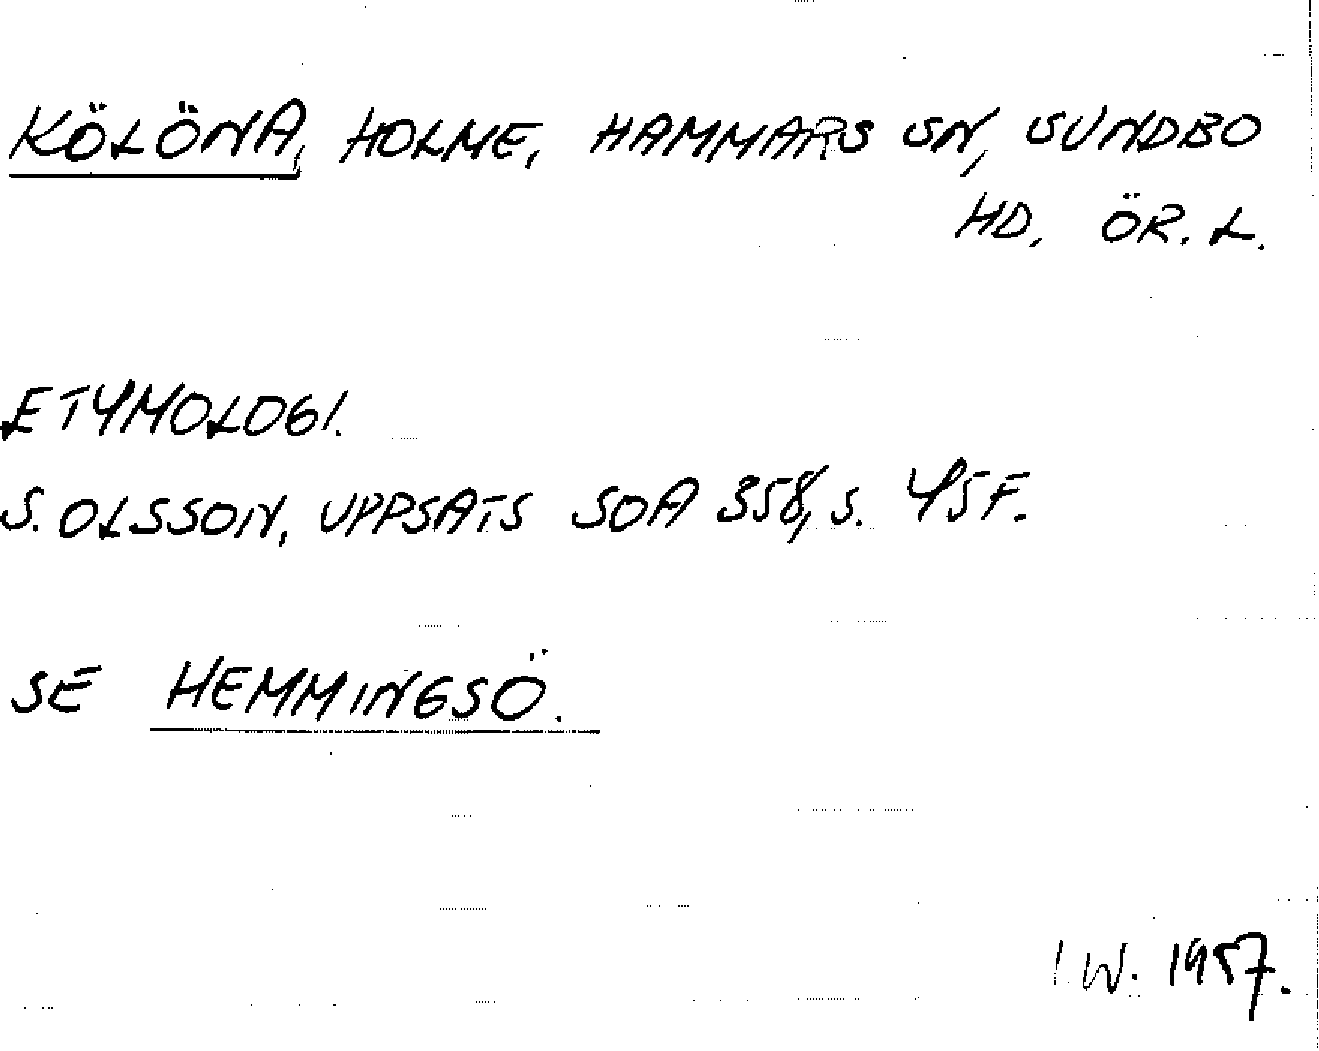 KÖLÖNA, HOLME, HAMMARS SN, SUNDBO
HD, ÖR. L.
ETYMOLOGI.
S. OLSSON, UPPSATS SOA 358, S. 45F.
SE HEMMINGSÖ.
I.W. 1957.